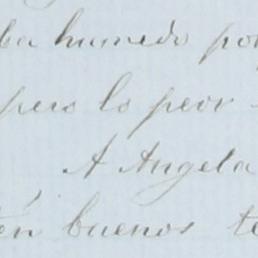 ba humedo por
pero lo peor
A Angela
én buenos te